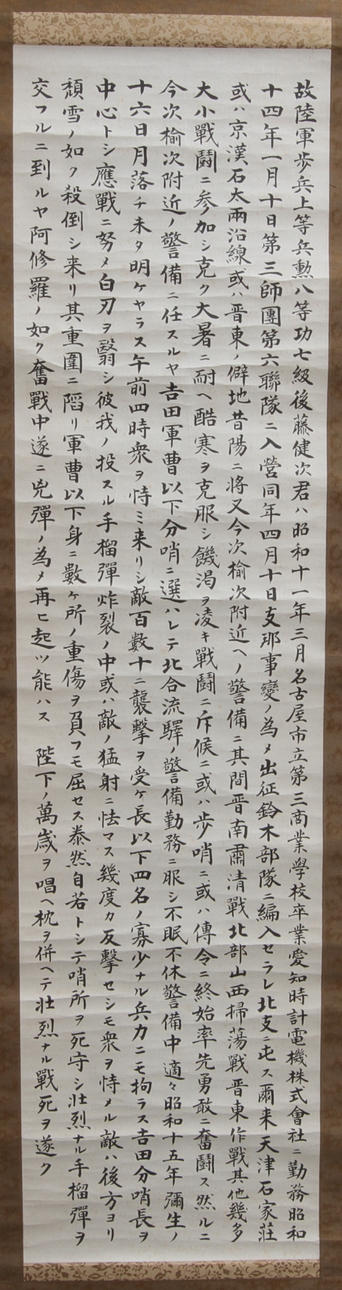 故陸軍歩兵上等兵勲八等功七級後藤健次君ハ昭和十一年三月名古屋市立第三商業學校卒業愛知時計電機株式會社ニ勤務昭和
十四年一月十日第三師團第六聯隊ニ入營同年四月十日支那事變ノ為メ出征鈴木部隊ニ編入セラレ北支ニ屯ス爾来天津石家荘
或ハ京漢石太兩沿線或ハ晋東ノ僻地昔陽ニ將又今次榆次附近ヘノ警備ニ其間晋南肅清戰北部山西掃蕩戰晋東作戰其他幾多
大小戰鬪ニ參加シ克ク大暑ニ耐ヘ酷寒ヲ克服シ饑渴ヲ凌キ戰鬪ニ斥候ニ或ハ歩哨ニ或ハ傳令ニ終始率先勇敢ニ奮鬪ス然ルニ
今次榆次附近ノ警備ニ任スルヤ吉田軍曹以下分哨ニ選ハレテ北合流驛ノ警備勤務ニ服シ不眠不休警備中適々昭和十五年彌生ノ
十六日月落チ未タ明ケヤラス午前四時衆ヲ恃ミ来リシ敵百數十ニ襲撃ヲ受ケ長以下四名ノ寡少ナル兵力ニモ拘ラス吉田分哨長ヲ
中心トシ應戰ニ努メ白刃ヲ翳シ彼我ノ投スル手榴彈炸裂ノ中或ハ敵ノ猛射ニ怯マス幾度カ反撃セシモ衆ヲ恃メル敵ハ後方ヨリ
頽雪ノ如ク殺倒シ来リ其重圍ニ陷リ軍曹以下身ニ數ヶ所ノ重傷ヲ負フモ屈セス泰然自若トシテ哨所ヲ死守シ壮烈ナル手榴彈ヲ
交フルニ到ルヤ阿修羅ノ如ク奮戰中遂ニ兇彈ノ為メ再ヒ起ツ能ハス 陛下ノ萬歳ヲ唱ヘ枕ヲ併ヘテ壮烈ナル戰死ヲ遂ク